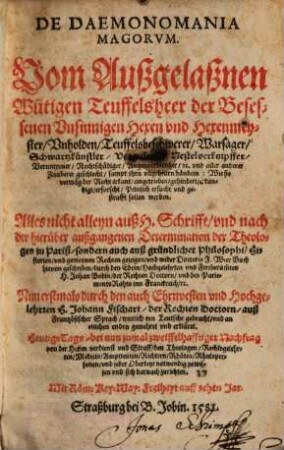 DE DAEMONOMANIA
MAGORVM.
Vom Außgelaßnen
Wütigen Teuffelsheer der Beses-
senen Vnsinnigen Hexen vnd Hexenmey-
ster/ Vnholden/ Teuffelsbeschwerer/ Warsager/
Schwartzkünstler/ Nestelverknipffer/
Veruntreuer/ Nachtschädiger/ vnd aller anderer
Zauberer geschlecht/ sampt jhren
Wie sie
vermög der Recht erkant/
erforschet/ Peinlich ersucht vnd ge-
strafft sollen werden.
Alles nicht alleyn auß H. Schrifft/ vnd nach
der hierüber außgangenen Determination der Theolo-
gen zu Pariß/ sondern auch auß gründlicher Philosophi/ Hi-
storien/ vnd gemeynen Rechten gezogen/ vnd wider Doctor J. Wier Buch
durch den Edeln/ Hochgelehrten vnd
H. Johann Bodin/ der Rechten Doctorn/ vnd des Parla-
ments Rhats inn Franckreich/ ꝛc.
Nun erstmals durch den auch Ehrnvesten vnd Hochge-
lehrten H. Johann Fischart/ der Rechten Doctorn/ auß
Frantzösischer Sprach/ trewlich inn Teutsche gebracht/ vnd an
etlichen enden gemehret vnd erkläret.
Heutigs Tags/ bei nun zumal zweiffelhafftiger Nachfrag
von der Hexen verdienst vnd Straff/ den Theologen/
Medicis/ Amptleuten/ Richtern/
vnd jeder Oberkeyt notwendig zuwis-
sen vnd sich darnach zurichten.
Mit Röm. Key. May. Freiheyt auff zehen Jar.
Straßburg bei B. Jobin. 1581.
Jonas